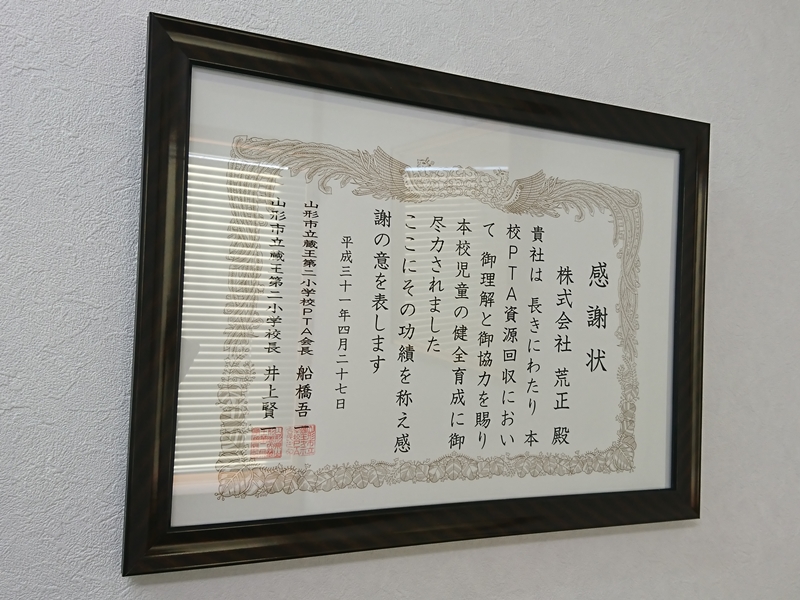 感謝状
株式会社 荒正 殿
貴社は 長きにわたり 本
校PTA資源回収におい
て 御理解と御協力を賜り
本校児童の健全育成に御
尽力されました
ここにその功績を称え感
謝の意を表します
平成三十一年四月二十七日
山形市立蔵王第二小学校PTA会長 船橋吾一
山形市立蔵王第二小学校長 井上賢一